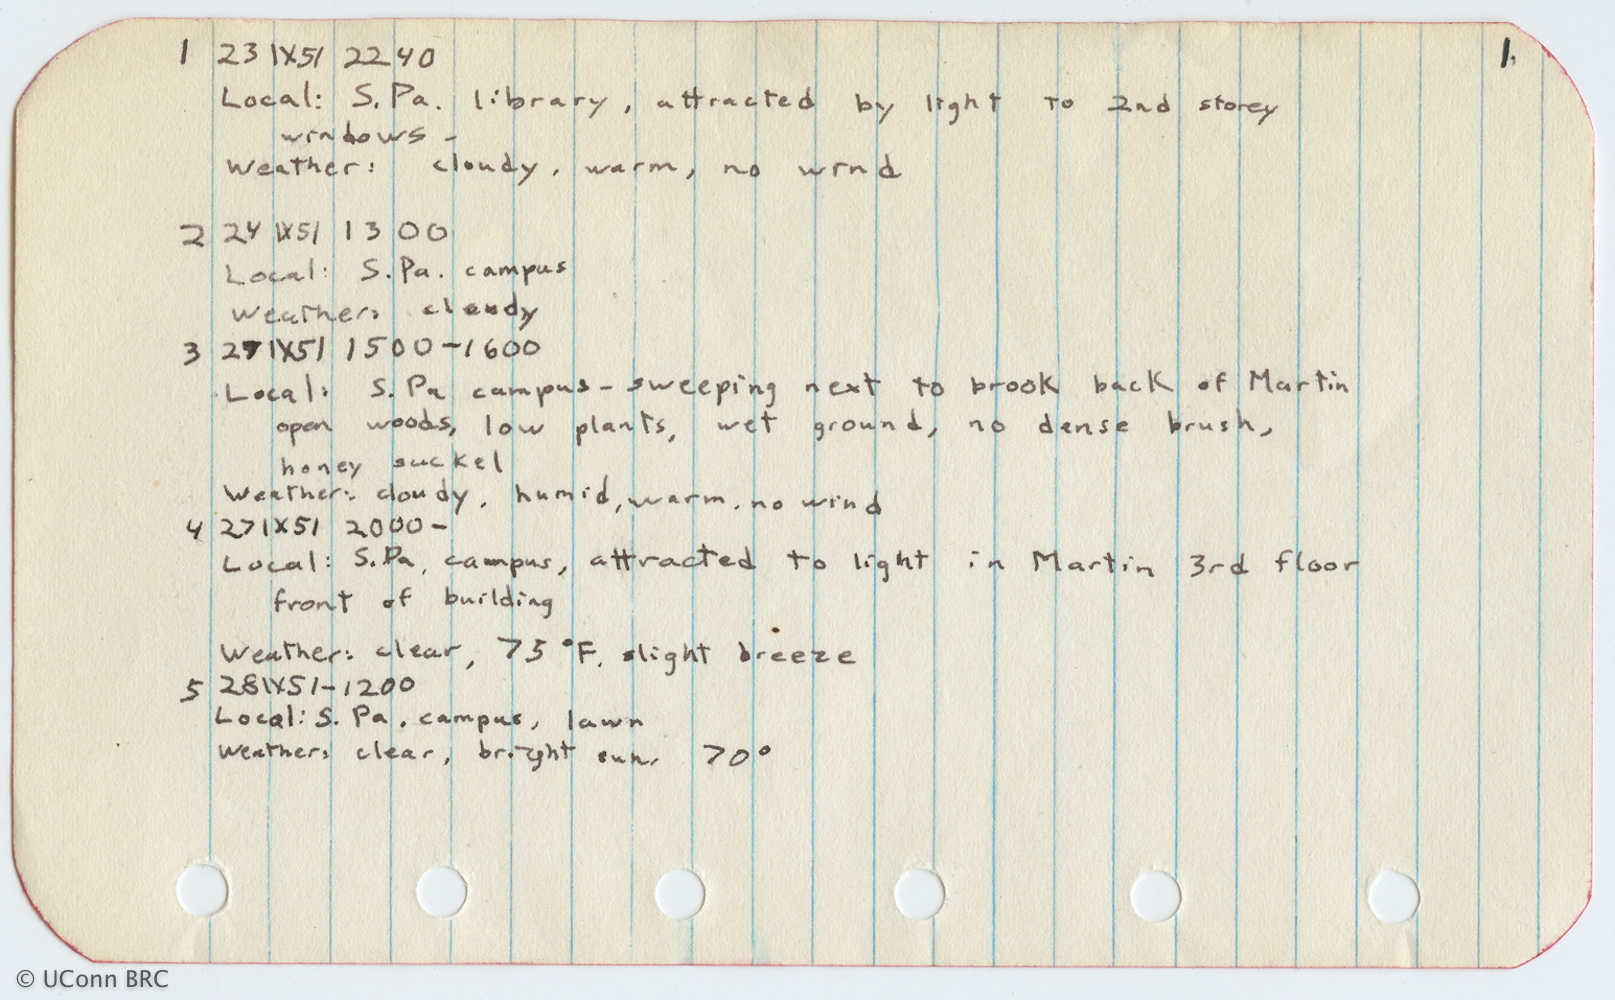 1.
1 23 IX51 2240
Local: S.Pa. library, attracted by light to 2nd storey
windows -
Weather: cloudy, warm, no wind
2 24 IX51 1300
Local: S.Pa. campus
Weather: cloudy
3 27 IX51 1500-1600
Local: S.Pa campus - sweeping next to brook back of Martin
open woods, low plants, wet ground, no dense brush,
honey suckel
Weather: cloudy, humid, warm, no wind
4 27 IX51 2000-
Local: S.Pa. campus, attracted to light in Martin 3rd floor
front of building
Weather: clear, 75°F, slight breeze
5 28 IX51-1200
Local: S. Pa. campus, lawn
Weather: clear, bright sun, 70°
© UConn BRC